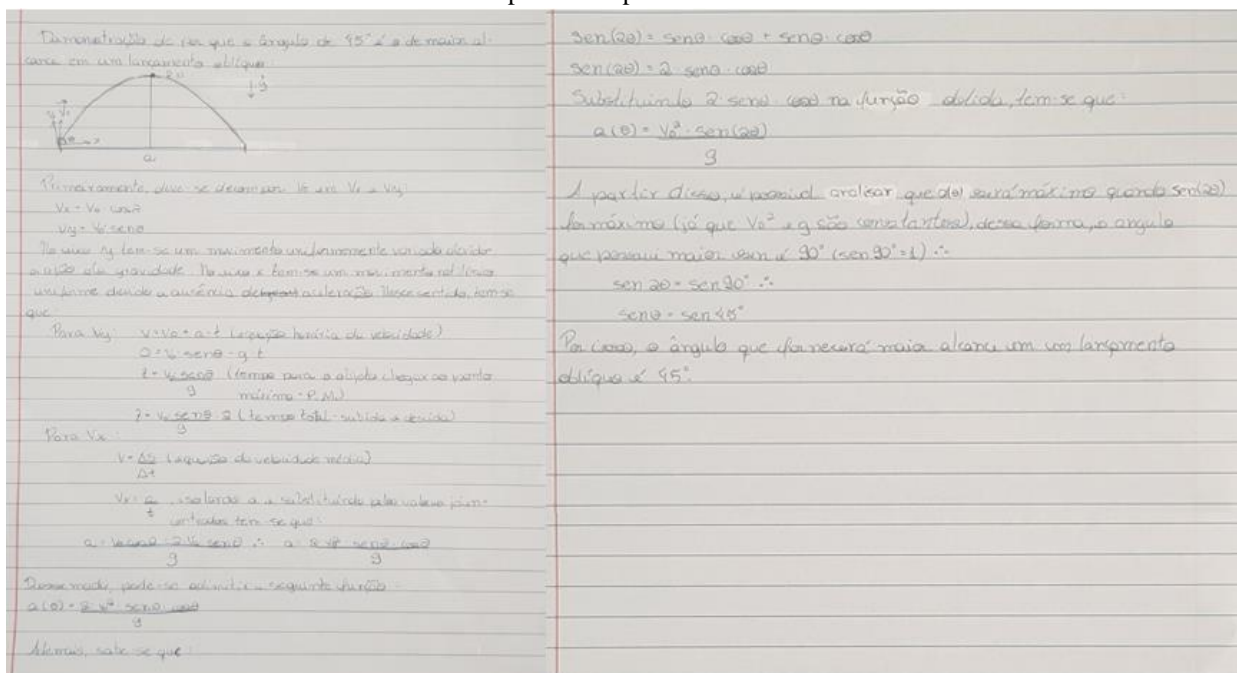 Demonstração de por que o ângulo de 45° é o de maior al-
cance em um lançamento oblíquo:
P.M
g
V₀
θ
x
a
Primeiramente, deve-se decompor V₀ em Vx e Vy:
Vx = V₀ · cosθ
Vy = V₀ senθ
No eixo y tem-se um movimento uniformemente variado devido
a ação da gravidade. No eixo x tem-se um movimento retilíneo
uniforme devido a ausência de aceleração. Nesse sentido, tem-se
que:
Para Vy: V = V₀ + a · t (equação horária da velocidade)
0 = V₀ senθ - g t
t = V₀ senθ (tempo para o objeto chegar ao ponto
g máximo - P.M.)
t = V₀ senθ · 2 (tempo total - subida e descida)
g
Para Vx:
V = ΔS (equação da velocidade média)
Δt
Vx = a , isolando a e substituindo pelos valores já en-
t contrados tem-se que:
a = V₀ cosθ · 2 V₀ senθ ∴ a = 2 V₀² senθ · cosθ
g g
Desse modo, pode-se admitir a seguinte função
a(θ) = 2 V₀² · senθ · cosθ
g
Ademais, sabe-se que:
sen(2θ) = senθ · cosθ + senθ · cosθ
sen(2θ) = 2 · senθ · cosθ
Substituindo 2 · senθ · cosθ na função obtida, tem-se que:
a(θ) = V₀² · sen(2θ)
g
A partir disso, é possível analisar que a(θ) será máximo quando sen(2θ)
for máximo (já que V₀² e g são constantes), dessa forma, o ângulo
que possui maior sen é 90° (sen 90° = 1) ∴
sen 2θ = sen 90° ∴
senθ = sen 45°
Por isso, o ângulo que fornecerá maior alcance em um lançamento
oblíquo é 45°.